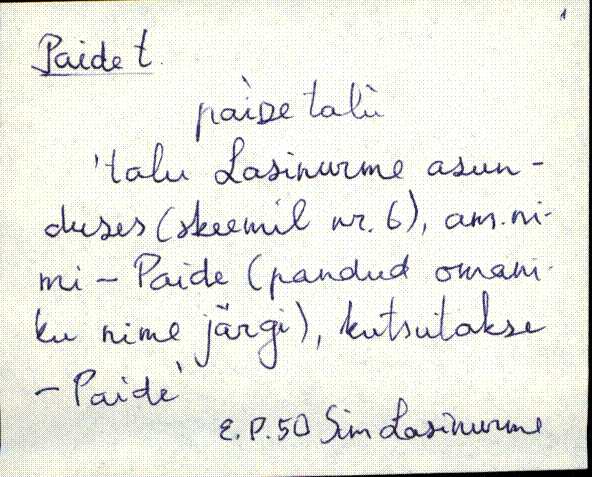 1
Paide t.
pàiᴅe talù
'talu Lasinurme asun-
duses (skeemil nr. 6), am. ni-
mi – Paide (pandud omani-
ku nime järgi), kutsutakse
– Paide'
E. P. 50 Sim Lasinurme